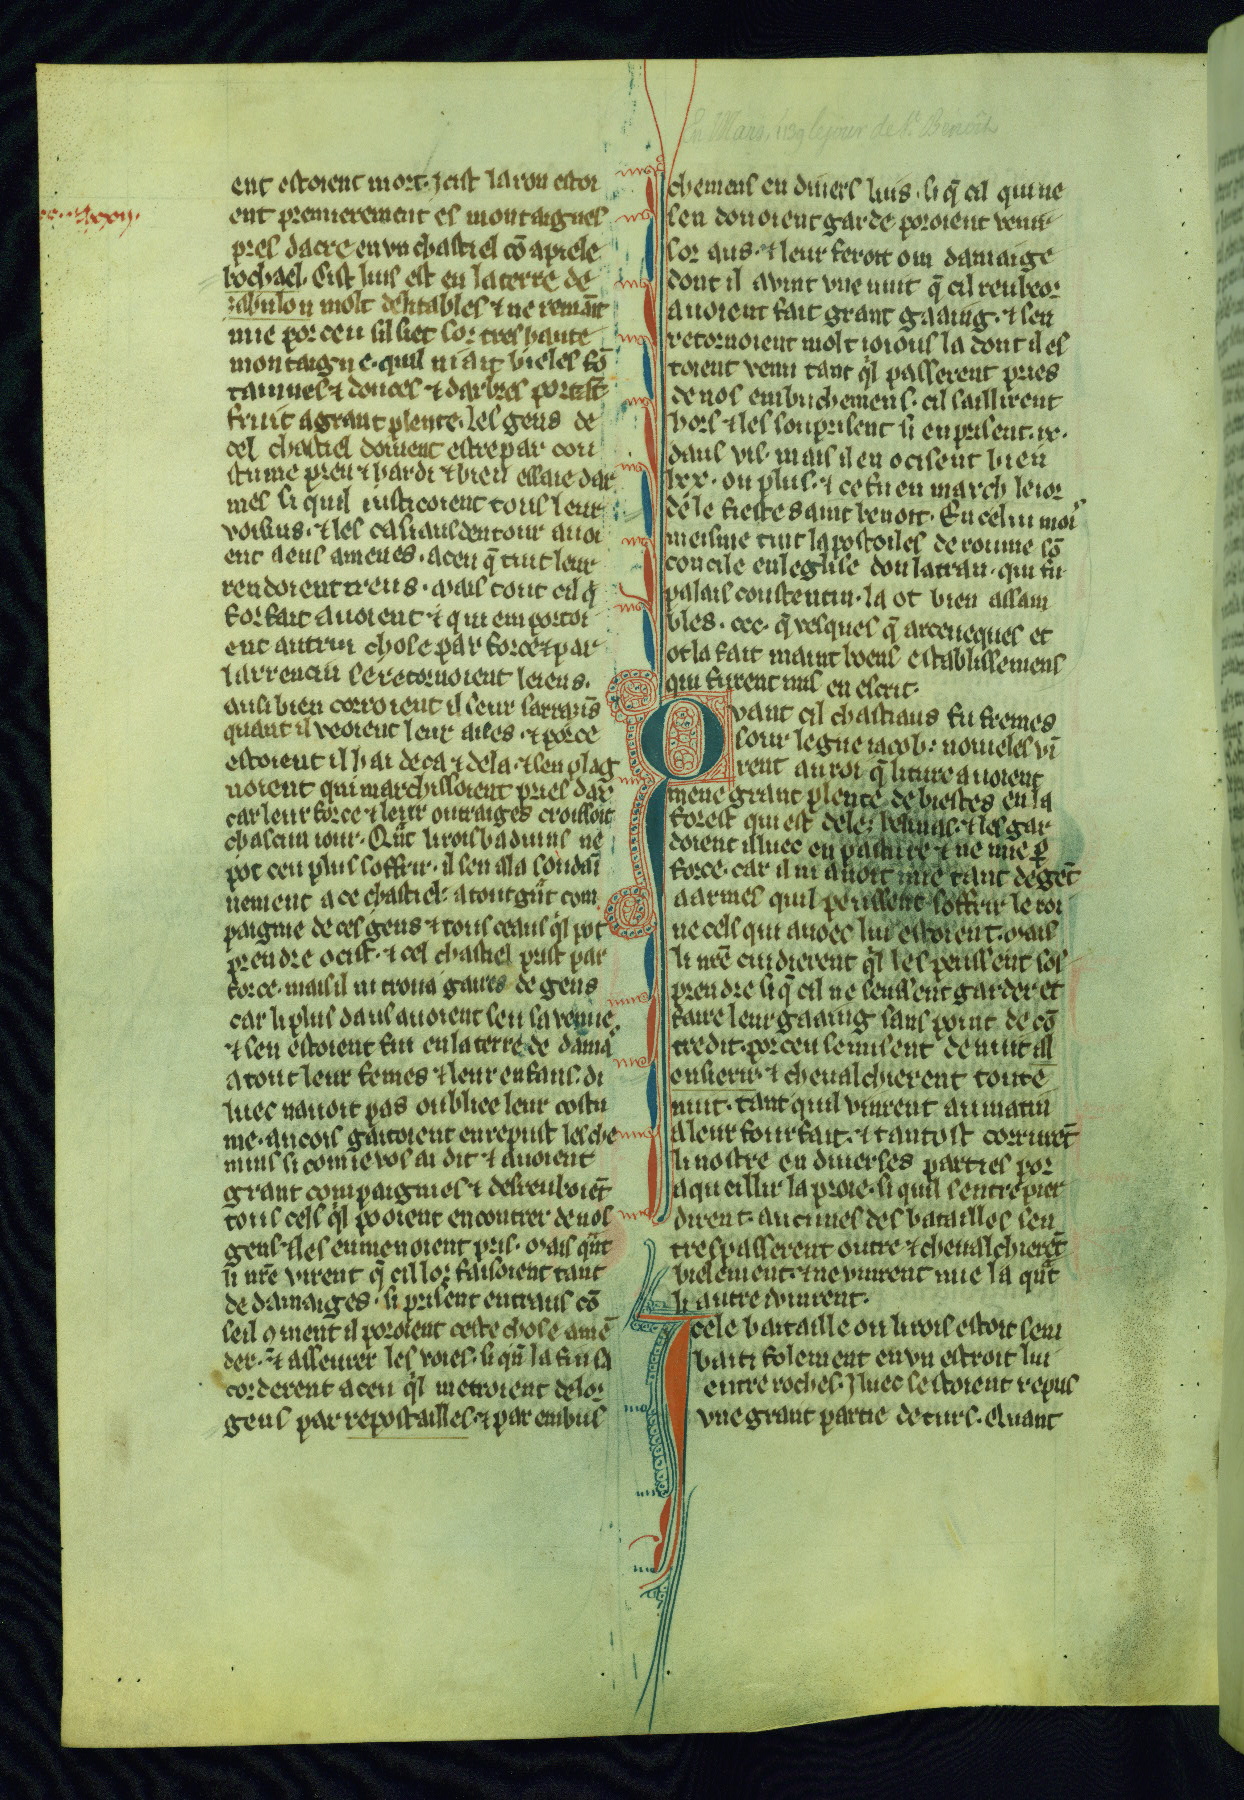 En Mars, 1139 le jour de St. Benoît
ent estoient mort. ⁊ cist larron estoi
ent premierement es montaignes
pres dacre en vn chastiel cō apiele
bochael. Cist luis est en la terre de
zabulon molt delitables ⁊ ne remāit
mie por ceu sil siet sor tres haute
montaigne. quil ni ait bieles fō
tainnes ⁊ douces ⁊ darbres portāt
fruit a grant plente. les gens de
cel chastiel doiuent estre par cou
stume preu ⁊ hardi ⁊ bien essaie dar
mes si quil iusticoient tous leur
voisins. ⁊ les casiaus dentour auoi
ent a eus amenes. a ceu q̄ tuit leur
rendoient treus. Mais tout cil q̄
forfait auoient ⁊ qui emportoi
ent autrui chose par force ⁊ par
larrencin se retornoient leiens.
ausi bien corroient il seur sarrasīs
quant il veoient leur aises. ⁊ porce
estoient il hai deca ⁊ dela. ⁊ sen plag
noient qui marchissoient pries dar
car leur force ⁊ leur outraiges croissoit
chascun iour. Qūt li rois baduins ne
pot ceu plus soffrir. il sen ala soudaī
nement a ce chastiel. a tout gūt com
paignie de ces gens ⁊ tous ceaus q̄l pot
prendre ocist. ⁊ cel chastiel prist par
force. mais il ni troua gaires de gens
car li plus daus auoient seu sa venue
⁊ sen estoient fui en la terre de dama
a tout leur femes ⁊ leur enfans. di
luec nauoit pas oubliee leur costu
me. ancois gaitoient en repust les che
mins si com ie vos ai dit ⁊ auoient
grant compaignies ⁊ desreuboiēt
tous cels q̄l pooient encontrer de nos
gens ⁊ les enmenoient pris. Mais qūt
li nr̄e virent q̄ cil lor faisoient tant
de damaiges. si prisent entraus cō
seil ɔment il poroient ceste chose amē
der. ⁊ asseurer les voies. si qn̄ la fin sa
corderent a ceu q̄l metroient de lor
gens par repostailles. ⁊ par embus
chemens en diuers luis. si q̄ cil qui ne
sen donoient garde poroient venir
sor aus. ⁊ leur feroit on damaige
dont il avint vne nuit q̄ cil reubeor
auoient fait grant gaaing. ⁊ sen
retornoient molt ioious la dont il es
toient venu tant q̄l passerent pries
de nos embuchemens. cil saillirent
hors ⁊ les sourprisent si en prisent. ix.
daus vis. mais il en ocisent bien
lxx. ou plus. ⁊ ce fu en march le ior
de le fieste saint benoit. En celui moi
meisme tint lapostoiles de roume sō
concile en leglise dou latran. qui fu
palais constentin. la ot bien assam
bles. ccc. q̄ vesques q̄ arceuesques et
ot la fait maint boens establissemens
qui furent mis en escrit.
Qvant cil chastiaus fu fremes
sour le gue iacob: noueles vī
rent au roi q̄ li ture auoient
mene grant plente de biestes en la
forest qui est deles belinas. ⁊ les gar
doient illuec en pasture ⁊ ne mie p̄
force. car il ni auoit mie tant de gēt
a armes quil peussent soffrir le roi
ne cels qui auoec lui estoient. Mais
li nr̄e cuidierent q̄l les peussent sos
prendre si q̄ cil ne seussent garder et
faire leur gaaing sans point de cō
tredit. por ceu se misent de nuit al
ensierir. ⁊ cheualchierent toute
nuit. tant quil vinrent au matin
a leur fourfait. ⁊ tantost corrurēt
li nostre en diuerses parties por
aqueillir la proie. si quil sentrepier
dirent. aucunes des batailles sen
trespasserent outre ⁊ cheualchierēt
bielement. ⁊ ne vinrent mie la qūt
li autre vinrent.
Icele bataille ou li rois estoit sem
bati folement en vn estroit lui
entre roches. Jluec sestoient repus
vne grant partie de turs. Quant